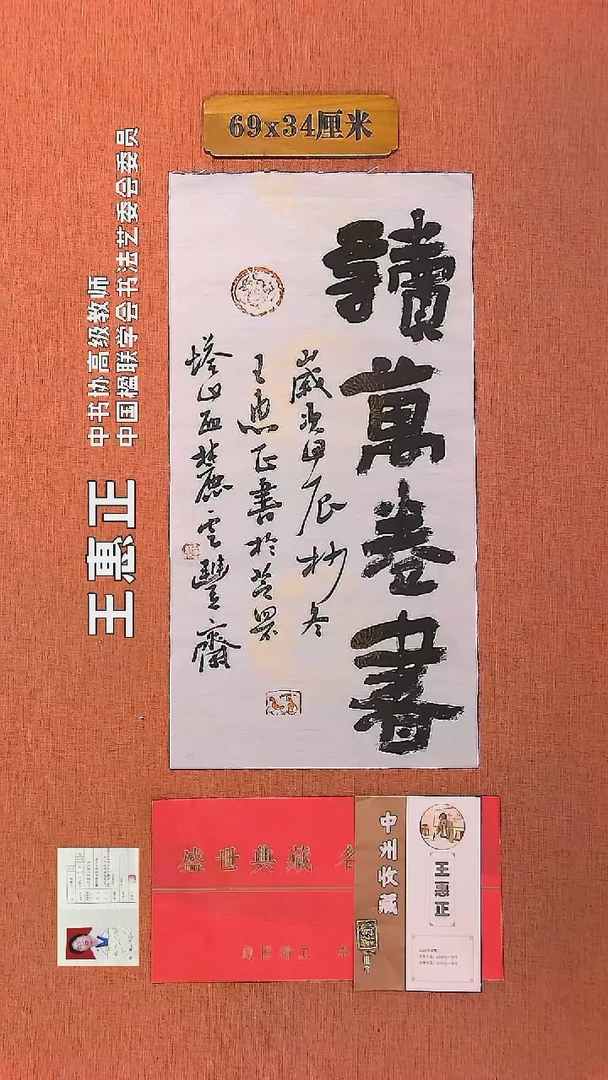 69x34厘米
讀萬卷書
歲次甲辰杪冬
王惠正書於莒界
塔山西麓雲豐齋
王惠正
中书协高级教师
中国楹联学会书法艺委会委员
盛世典藏 名
中州收藏
王惠正